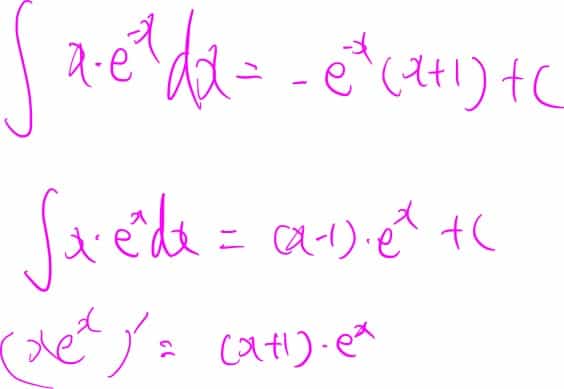 ∫ x·e^{-x} dx = -e^{-x}(x+1)+C
∫ x·e^{x} dx = (x-1)·e^{x} +C
(xe^{x})' = (x+1)·e^{x}